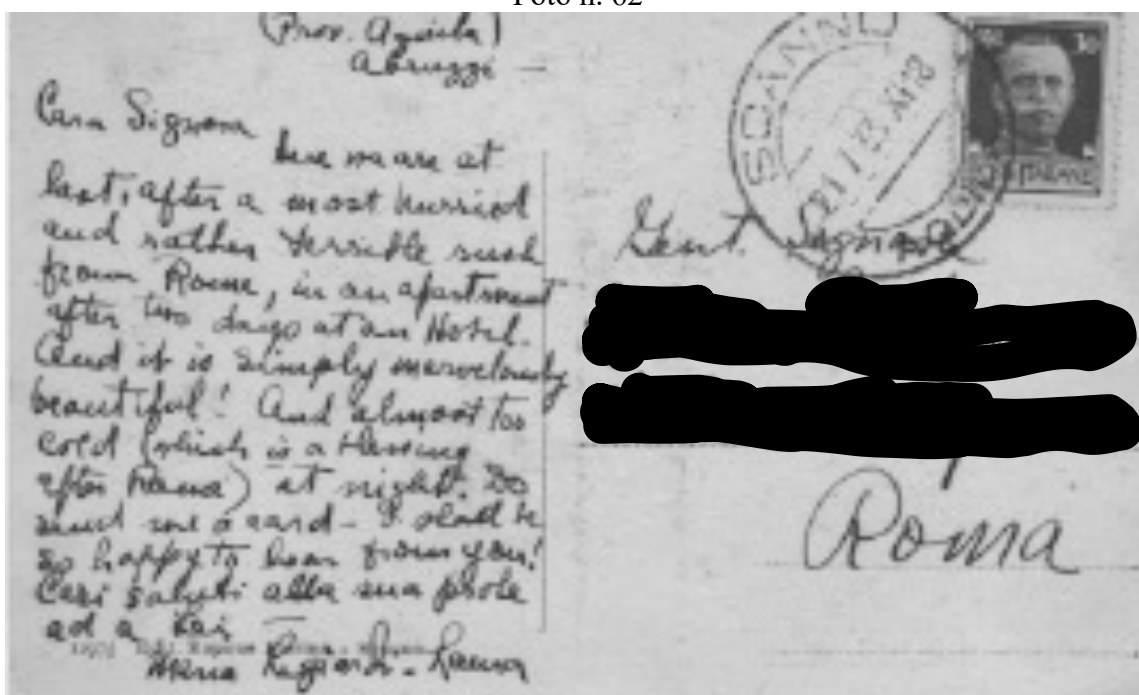 Foto n. 62
(Prov. Aquila)
Abruzzi —
Cara Signora
here we are at
last, after a most hurried
and rather terrible rush
from Rome, in an apartment
after two days at an Hotel.
And it is simply marvelously
beautiful! And almost too
cold (which is a blessing
after Roma) at night. Do
send me a card - I shall be
so happy to hear from you!
Cari saluti alla sua prole
ed a Lei
Maria
SCANNO
XI
Gent. Signora
Roma